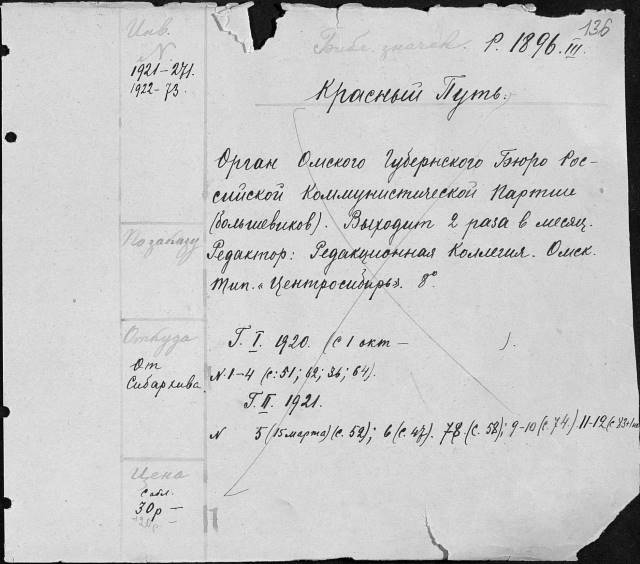 136
Инв.
N.
1921-271.
1922-73.
Библ. значек. Р. 1896. III.
Красный Путь.
Орган Омского Губернского Бюро Рос-
сийской Коммунистической Партии
(большевиков). Выходит 2 раза в месяц.
Редактор: Редакционная Коллегия. Омск.
Тип. "Центросибирь". 8°
По заказу
Откуда
от
Сибархива
Г. I. 1920. (с 1 окт — ).
N. 1-4 (с: 51; 62; 36; 64).
Г. II. 1921.
N 5 (15 марта) (с. 52); 6 (с. 47). 78. (с. 58); 9-10 (с. 74.) 11-12 (с. 83
Цена
с абл.
30р —
120р —